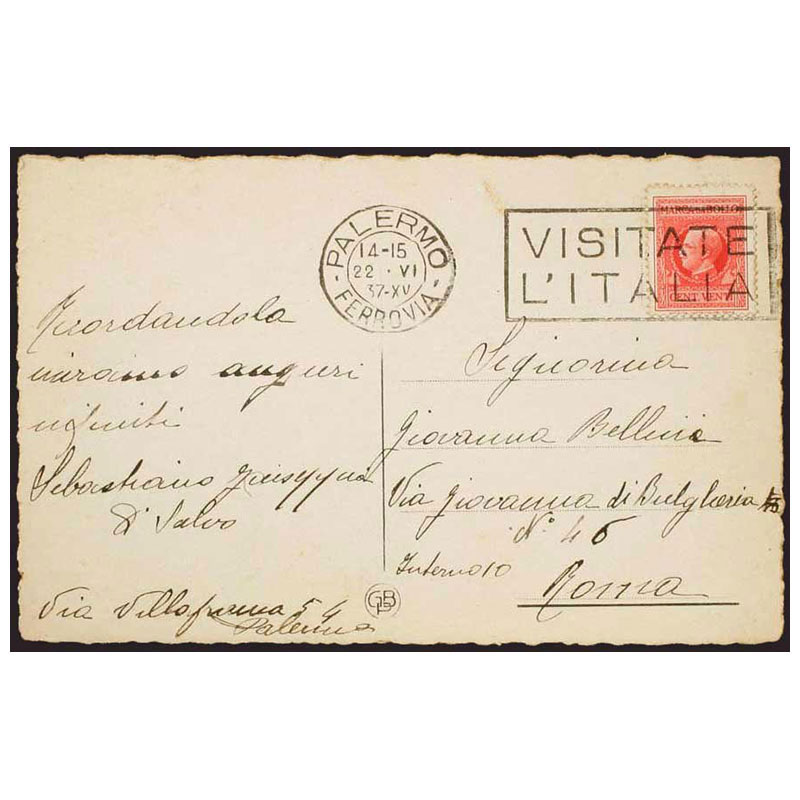 PALERMO
14-15
22 · VI
37-XV
- FERROVIA -
VISITATE
L'ITALIA
MARCA DA BOLLO
CENT VENTI
Ricordandola
auguri
infiniti
Sebastiano
Di Salvo
Via Villafranca 54
Palermo
Signorina
Giovanna Bellini
Via Giovanna di Bulgheria
N° 46
Interno 10
Roma
GBP